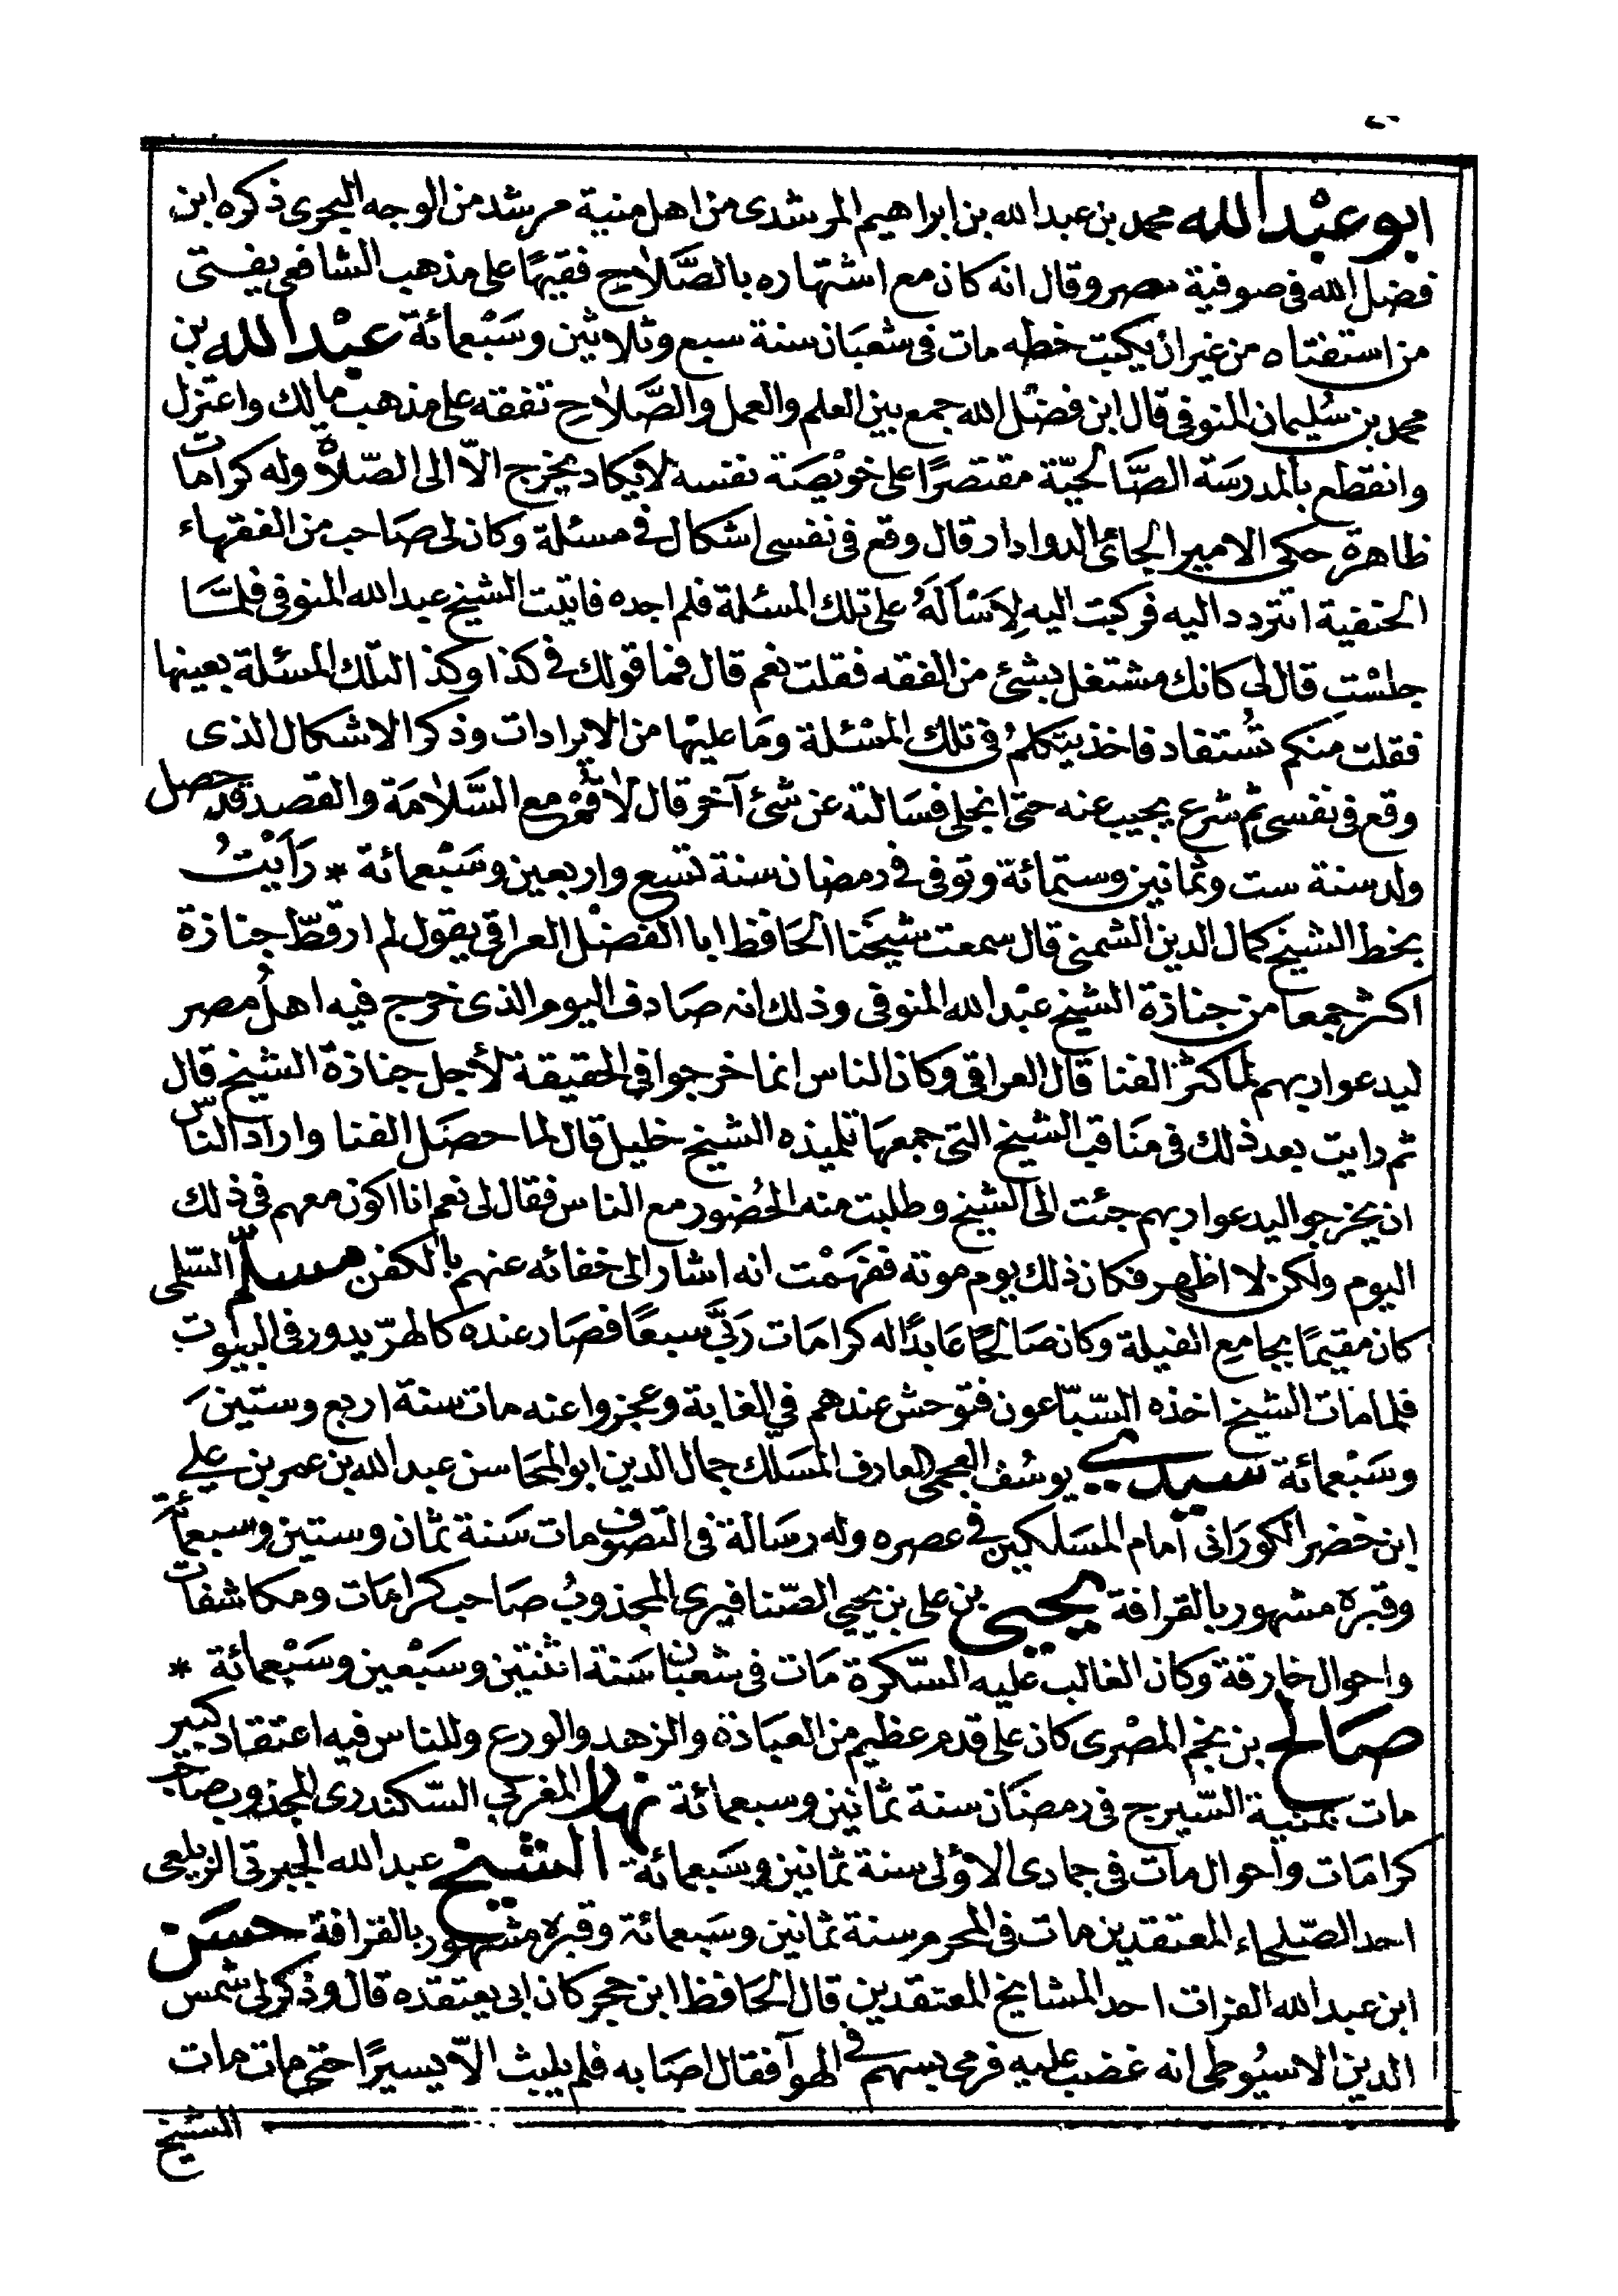 ابو عبد الله محمد بن عبد الله بن ابراهيم المرشدى من اهل منية مرشد من الوجه البحرى ذكره ابن
فضل الله فى صوفية مصر وقال انه كان مع اشتهاره بالصَّلاح فقيهًا على مذهب الشافعى يفتى
من استفتاه من غير ان يكتب خطه مات فى شعبَان سنة سبع وثلاثين وسَبْعمائة عبْد الله بن
محمد بن سُليمان المنوفى قال ابن فضْل الله جمع بين العلم والعمل والصَّلاح تفقه على مذهب مالك واعتزل
وانقطع بالمدرسَة الصَّالحيّة مقتصرًا على خوْيصَة نفسه لا يكاد يخرج الاّ الى الصّلاة وله كرامات
ظاهرة حكى الامير الجائى الدوادار قال وقع فى نفسى اشكال فى مسئلة وكان لى صَاحب من الفقهاء
الحنفية اتردد اليه فركبت اليه لِاَسْألَهُ على تلك المسئلة فلم اجده فاتيت الشيخ عبد الله المنوفى فلمَّا
جلسْت قال لى كانك مشتغل بشئ من الفقه فقلت نعم قال فما قولك فى كذا وكذا لتلك المسئلة بعينها
فقلت منكم تُستفاد فاخذ يتكلمُ فى تلك المسْئلة ومَا عليْها من الايرادات وذكر الاشكال الذى
وقع فى نفسى ثم شرع يجيب عنه حتى انجلى فسَالته عن شئ آخر قال لا قمْ مع السَّلامَة والقصد قد حصل
ولد سنة ست وثمانين وستمائة وتوفى فى رمضان سنة تسع واربعين وسَبْعمائة * رَاَيْتُ
بخط الشيخ كمال الدين الشمنى قال سمعت شيخَنا الحَافظ ابا الفضْل العراقى يقول لم ار قطّ جنازة
اكثر جمعا من جنازة الشيخ عبْد الله المنوفى وذلك انه صَادف اليوم الذى خرج فيه اهلُ مصر
ليدعوا ربهم لما كثر الفنا قال العراقى وكان الناس انما خرجوا فى الحقيقة لأجل جنازة الشيخ قال
ثم رايت بعد ذلك فى منَاقب الشيخ التى جمعهَا تلميذه الشيخ خليل قال لما حصَل الفنا واراد الناس
ان يخرجوا ليدعوا ربهم جئت الى الشيخ وطلبت منه الحُضور مع الناس فقال لى نعم انا اكون معهم فى ذلك
اليوم ولكن لا اظهر فكان ذلك يوم موته ففهَمْت انه اشار الى خفائه عنهم بالكفن مسلّم السّلمى
كان مقيمًا بجامع الفيلة وكان صَالحًا عَابدًا له كرامَات ربَّى سبعًا فصَار عنده كالهرّ يدور فى البيوت
فلما مَات الشيخ اخذه السّبّاعون فتوحش عندهم فى الغاية وعجزوا عنه مات سنة اربع وستينَ
وسَبْعمائة سيدى يوسُف العجمى العارف المسَلك جمال الدين ابو المحَاسن عبد الله بن عمر بن على
ابن خضر الكورَانى امام المسَلكين فى عصره وله رسَالة فى التصوف مات سَنة ثمان وستين وسبعمائة
وقبره مشهور بالقرافة يحيى بن على بن يحيى الصّنافيرى المجذوبُ صَاحب كرامَات ومكاشفات
واحوال خارقة وكان الغالب عليه السّكرة مَات فى شعبان سَنة اثنتين وسَبْعين وسَبْعمائة *
صَالح بن نجم المصْرى كان على قدم عظيم من العبَادة والزهد والورع وللناس فيه اعتقاد كبير
مات بمنية السّيرج فى رمضَان سنة ثمانين وسبعمائة نهار المغربى السّكندرى المجذوب صَاحب
كرامَات واحوال مات فى جمادى الاولى سنة ثمانين وسَبعمائة الشيخ عبد الله الجبرتى الزيلعى
احد الصّلحاء المعتقدين مات فى المحرم سنة ثمانين وسَبعمائة وقبره مشهور بالقرافة حسَن
ابن عبد الله الفرات احد المشايخ المعتقدين قال الحَافظ ابن حجر كان ابى يعتقده قال وذكر لى شمس
الدين الاسيُوطى انه غضب عليه فرمى بسهم فى الهوآ فقال اصَابه فلم يلبث الاّ يسيرًا حتى مات مات
الشيخ